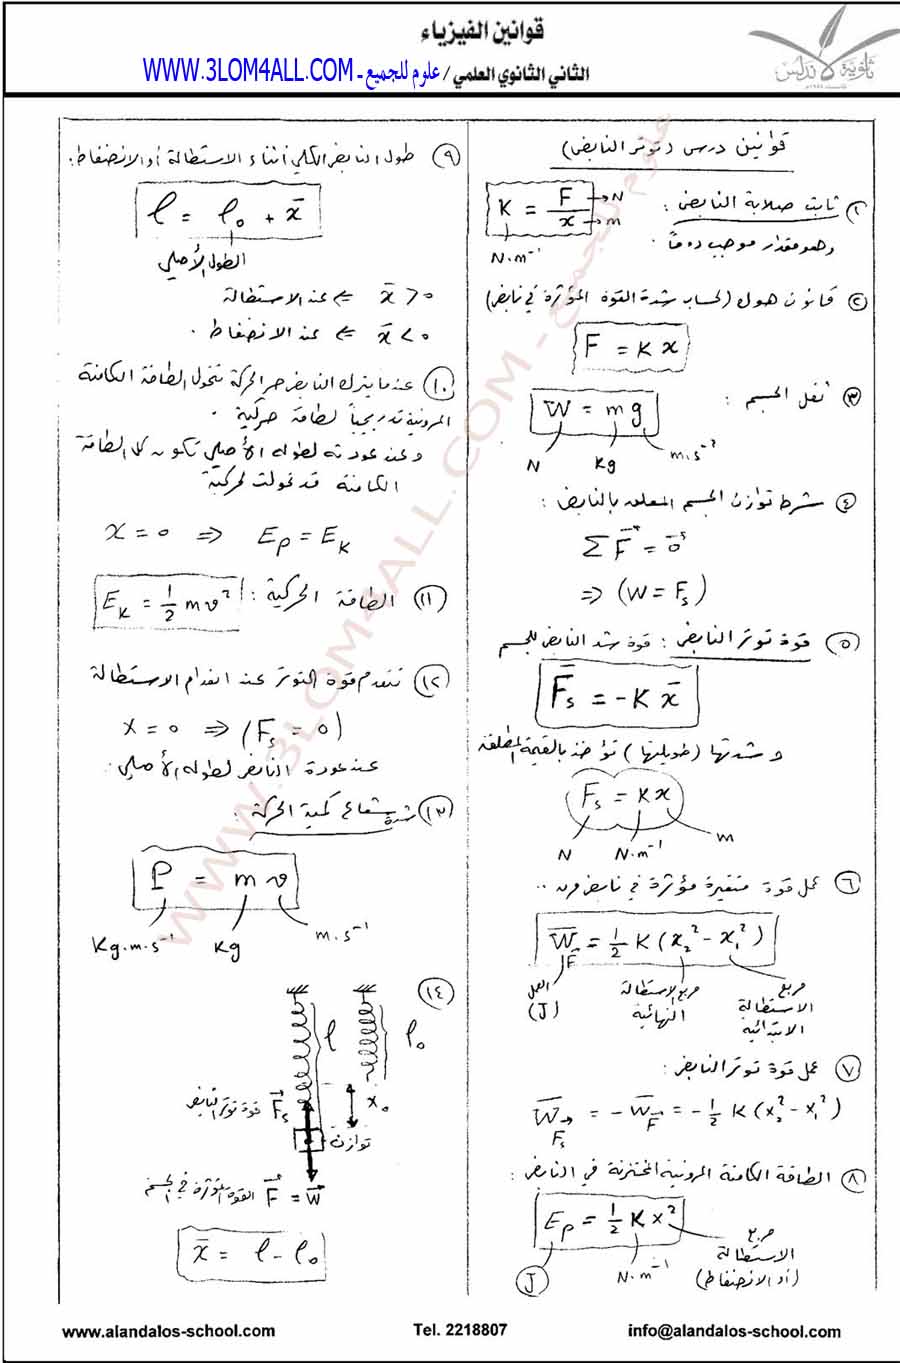 قوانين الفيزياء
الثاني الثانوي العلمي / علوم للجميع - WWW.3LOM4ALL.COM
ثانوية الأندلس
قوانين درس (توتر النابض)
١ ثابت صلابة النابض : K = F / x
N
m
N.m⁻¹
وهو مقدار موجب دوماً .
٢ قانون هوك (لحساب شدة القوة المؤثرة في نابض)
F = K x
٣ ثقل الجسم :
W = m g
N
Kg
m.s⁻²
٤ شرط توازن الجسم المعلق بالنابض :
Σ F⃗ = 0⃗
⇒ (W = Fs)
٥ قوة توتر النابض : قوة شد النابض للجسم
F̄s = -K x̄
و شدتها (طويلتها) تؤخذ بالقيمة المطلقة
Fs = K x
N
N.m⁻¹
m
٦ عمل قوة متغيرة مؤثرة في نابض مرن ..
W̄F = ½ K (x₂² - x₁²)
العمل (J)
مربع الاستطالة النهائية
مربع الاستطالة الابتدائية
٧ عمل قوة توتر النابض :
W̄Fs = - W̄F = -½ K (x₂² - x₁²)
٨ الطاقة الكامنة المرونية المختزنة في النابض :
Ep = ½ K x²
J
N.m⁻¹
مربع الاستطالة (أو الانضغاط)
٩ طول النابض الكلي أثناء الاستطالة أو الانضغاط .
ℓ = ℓ₀ + x̄
الطول الأصلي
x̄ > 0 ⇐ عند الاستطالة
x̄ < 0 ⇐ عند الانضغاط .
١٠ عندما يترك النابض حر الحركة تتحول الطاقة الكامنة
المرونية تدريجياً لطاقة حركية .
وعند عودته لطوله الأصلي تكون كل الطاقة
الكامنة قد تحولت لحركية
x = 0 ⇒ Ep = Ek
١١ الطاقة الحركية : Ek = ½ m v²
١٢ تنعدم قوة التوتر عند انعدام الاستطالة
x = 0 ⇒ (Fs = 0)
عند عودة النابض لطوله الأصلي .
١٣ شدة شعاع كمية الحركة :
P = m v
Kg.m.s⁻¹
Kg
m.s⁻¹
١٤
ℓ
ℓ₀
x₀
توازن
قوة توتر النابض F⃗s
القوة المؤثرة في الجسم F⃗ = W⃗
x̄ = ℓ - ℓ₀
علوم للجميع - WWW.3LOM4ALL.COM
www.alandalos-school.com
Tel. 2218807
info@alandalos-school.com